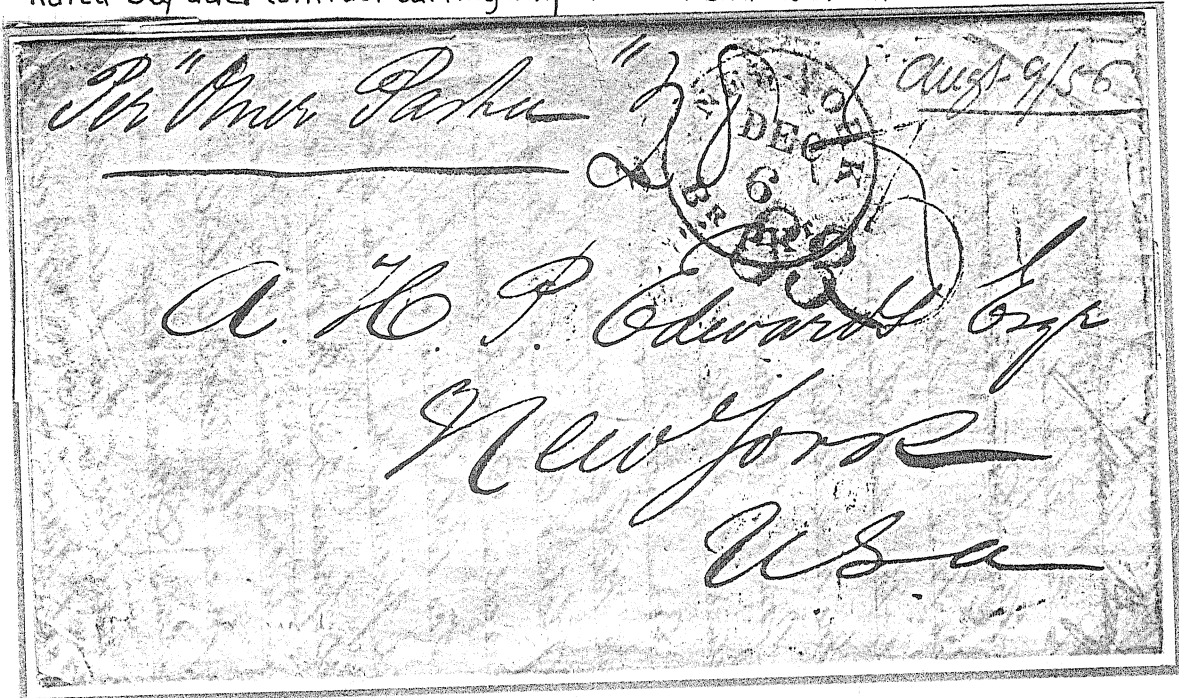 Per "Omer Pasha"
Augt 9/56
NEW YORK
DEC
6
BR. PKT
A. H. P. Edwards Esqr
New York
Usa